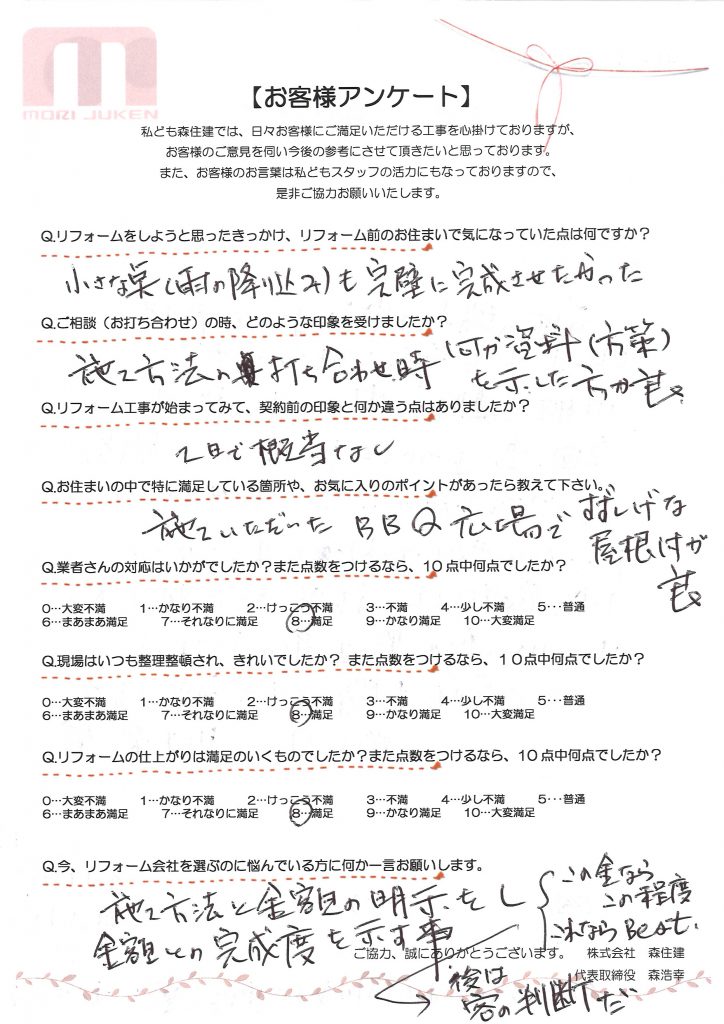 MORI JUKEN
【お客様アンケート】
私ども森住建では、日々お客様にご満足いただける工事を心掛けておりますが、
お客様のご意見を伺い今後の参考にさせて頂きたいと思っております。
また、お客様のお言葉は私どもスタッフの活力にもなっておりますので、
是非ご協力お願いいたします。
Q.リフォームをしようと思ったきっかけ、リフォーム前のお住まいで気になっていた点は何ですか？
小さな巣(雨の降り込み)も完璧に完成させたかった
Q.ご相談（お打ち合わせ）の時、どのような印象を受けましたか？
施工方法の打ち合わせ時 何か資料(方策)
を示した方が良
Q.リフォーム工事が始まってみて、契約前の印象と何か違う点はありましたか？
2日で概当なし
Q.お住まいの中で特に満足している箇所や、お気に入りのポイントがあったら教えて下さい。
施工いただいた BBQ広場で
屋根付が
良
Q.業者さんの対応はいかがでしたか？また点数をつけるなら、10点中何点でしたか？
0…大変不満 1…かなり不満 2…けっこう不満 3…不満 4…少し不満 5…普通
6…まあまあ満足 7…それなりに満足 8…満足 9…かなり満足 10…大変満足
Q.現場はいつも整理整頓され、きれいでしたか？ また点数をつけるなら、１０点中何点でしたか？
0…大変不満 1…かなり不満 2…けっこう不満 3…不満 4…少し不満 5…普通
6…まあまあ満足 7…それなりに満足 8…満足 9…かなり満足 10…大変満足
Q.リフォームの仕上がりは満足のいくものでしたか？また点数をつけるなら、10点中何点でしたか？
0…大変不満 1…かなり不満 2…けっこう不満 3…不満 4…少し不満 5…普通
6…まあまあ満足 7…それなりに満足 8…満足 9…かなり満足 10…大変満足
Q.今、リフォーム会社を選ぶのに悩んでいる方に何か一言お願いします。
施工方法と金額の明示をし
金額との完成度を示す事
この金なら
この程度
これなら Best.
後は
客の判断だ
ご協力、誠にありがとうございます。 株式会社 森住建
代表取締役 森浩幸